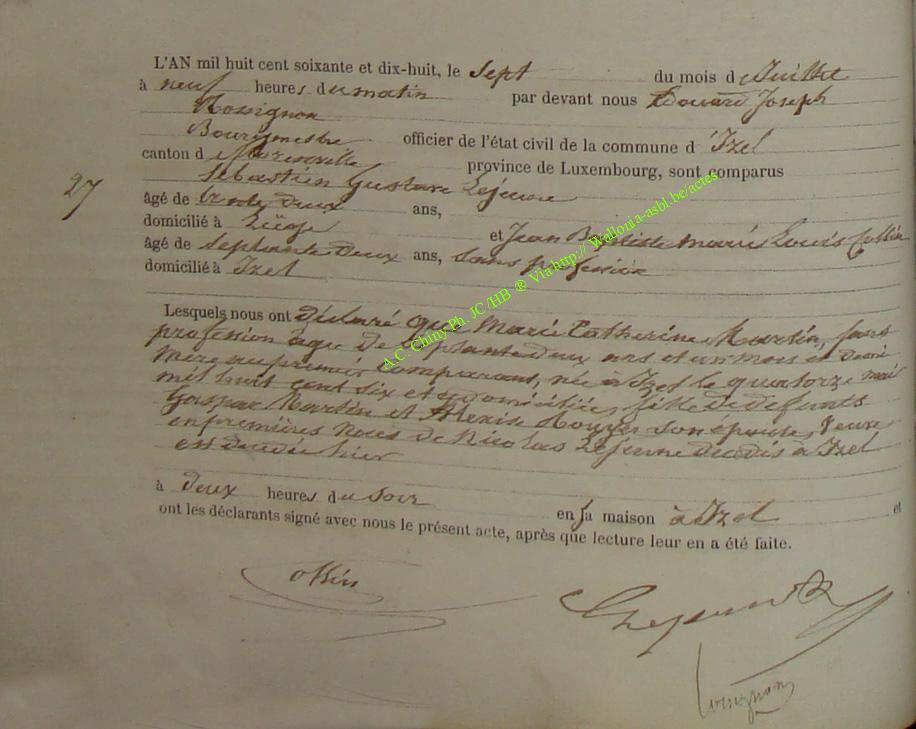 L'AN mil huit cent soixante et dix-huit, le Sept du mois de Juillet
à neuf heures du matin par devant nous Edouard Joseph
Rossignon
Bourgmestre officier de l'état civil de la commune d'Izel
canton de province de Luxembourg, sont comparus
27
Sebastien Gustave Lejeune
âgé de trente deux ans,
domicilié à Liège et Jean Baptiste Marie Louis Collin
âgé de Septante Deux ans, sans profession
domicilié à Izel
Lesquels nous ont déclaré que Marie Catherine Martin, sans
profession agée de Septante deux ans et un mois et demi
mère au premier Comparant, née à Izel le quatorze mai
mil huit cent six et y domiciliée, fille de defunts
Gaspar Martin et Rouyer son epouse, Veuve
en premières noces de Nicolas Lejeune décédé à Izel
est décédée hier
à deux heures du Soir en sa maison à Izel et
ont les déclarants signé avec nous le présent acte, après que lecture leur en a été faite.
Collin
Lejeune
Rossignon
A.C. Chiny Ph. JC /HB ® Via http:// Wallonia-asbl.be/actes